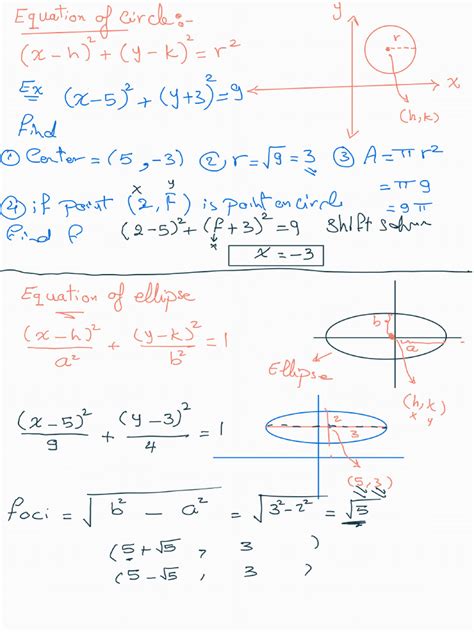 Equation of circle:-
(x-h)² + (y-k)² = r²
y
r
x
(h,k)
Ex (x-5)² + (y+3)² = 9
Find
① Center = (5, -3) ② r = √9 = 3 ③ A = π r²
= π 9
= 9π
④ if point (2, F) is point on circle
x y
Find F (2-5)² + (F+3)² = 9 Shift solve
x
x = -3
Equation of ellipse
(x-h)²/a² + (y-k)²/b² = 1
b
a
Ellipse
(h,k)
x y
(x-5)²/9 + (y-3)²/4 = 1
2
3
(5,3)
foci = √(b² - a²) = √(3²-2²) = √5
(5+√5, 3)
(5-√5, 3)